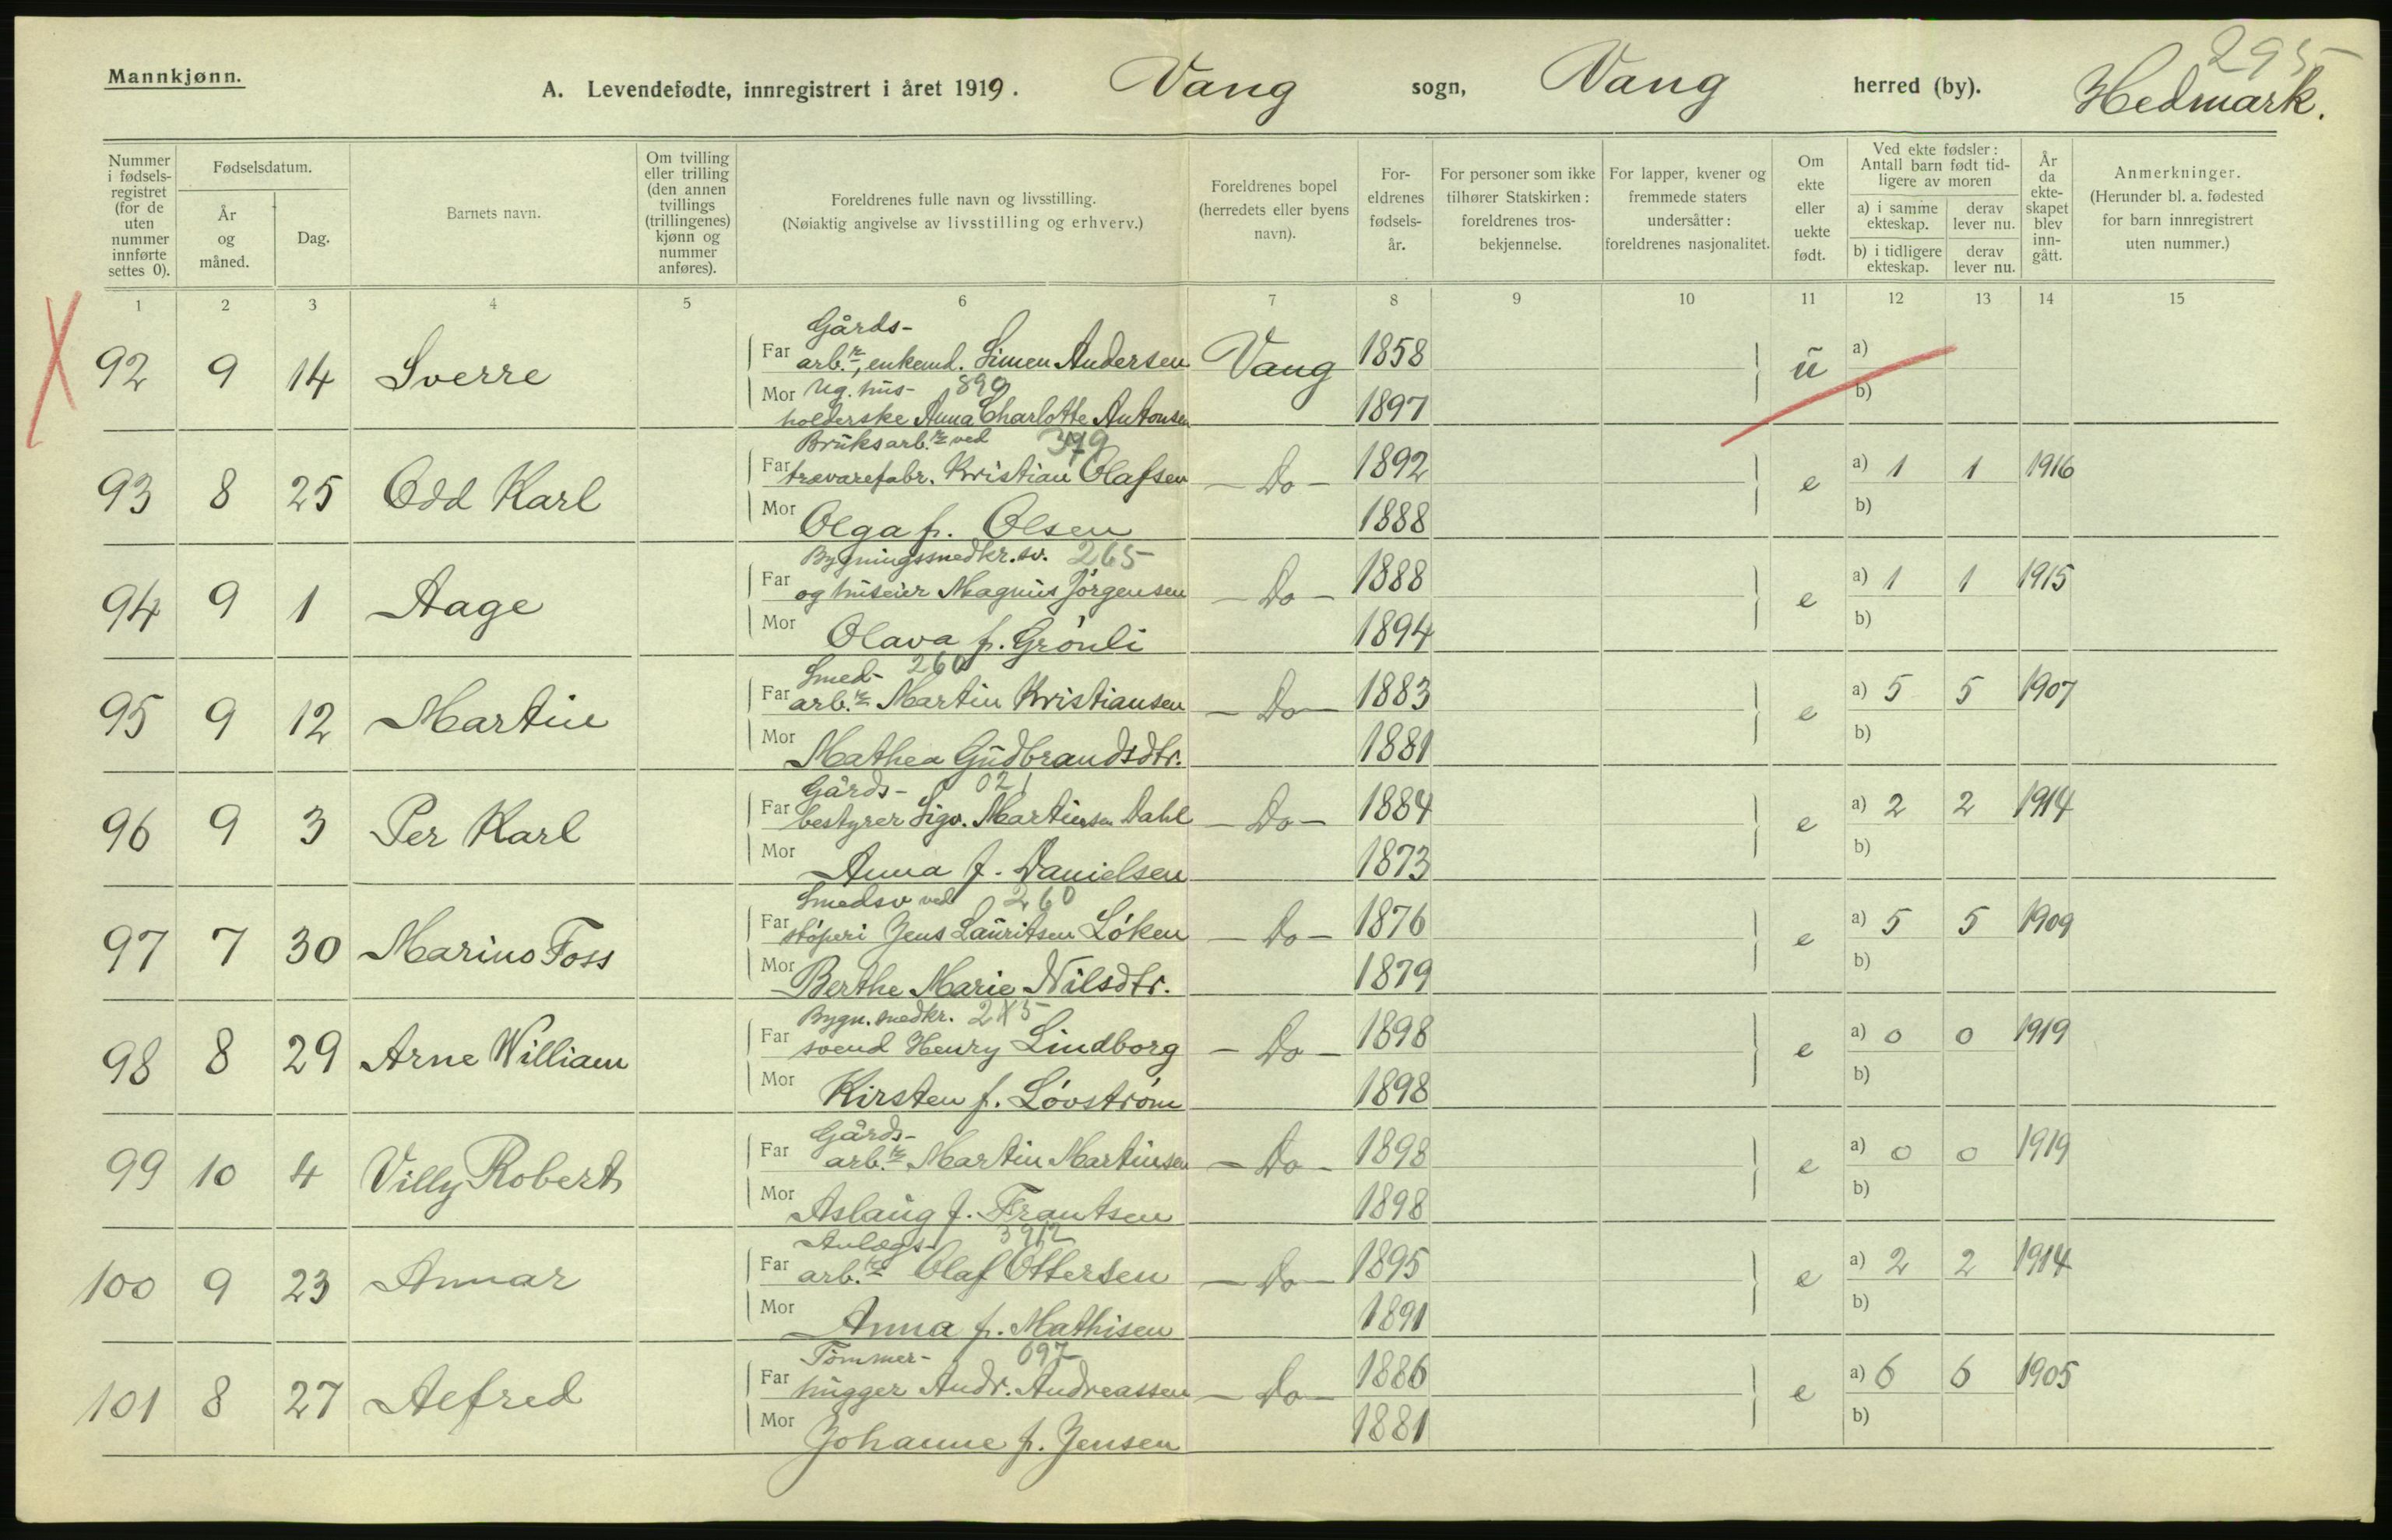 295
Mannkjønn.
A. Levendefødte, innregistrert i året 1919. Vang sogn, Vang herred (by). Hedmark.
Nummer i fødselsregistret (for de uten nummer innførte settes 0).
Fødselsdatum.
År og måned.
Dag.
Barnets navn.
Om tvilling eller trilling (den annen tvillings (trillingenes) kjønn og nummer anføres).
Foreldrenes fulle navn og livsstilling.
(Nøiaktig angivelse av livsstilling og erhverv.)
Foreldrenes bopel (herredets eller byens navn).
Foreldrenes fødselsår.
For personer som ikke tilhører Statskirken: foreldrenes trosbekjennelse.
For lapper, kvener og fremmede staters undersåtter: foreldrenes nasjonalitet.
Om ekte eller uekte født.
Ved ekte fødsler: Antall barn født tidligere av moren
a) i samme ekteskap. derav lever nu.
b) i tidligere ekteskap. derav lever nu.
År da ekteskapet blev inngått.
Anmerkninger.
(Herunder bl. a. fødested for barn innregistrert uten nummer.)
1 2 3 4 5 6 7 8 9 10 11 12 13 14 15
Gårds-
92 9 14 Sverre Far arb.r, enkemd. Simen Andersen Vang 1858 u a)
Mor Ug. hus- 890 b)
holderske Anna Charlotte Antonsen 1897
Bruksarb.r ved 379
93 8 25 Odd Karl Far trævarefabr. Kristian Olafsen - Do - 1892 e a) 1 1 1916
Mor Olga f. Olsen 1888 b)
Bygningssnedkr.sv. 265
94 9 1 Aage Far og huseier Magnus Jørgensen - Do - 1888 e a) 1 1 1915
Mor Olava f. Grønli 1894 b)
Smed- 260
95 9 12 Martin Far arb.r Martin Kristiansen - Do - 1883 e a) 5 5 1907
Mor Mathea Gudbrandsdtr. 1881 b)
Gårds- 021
96 9 3 Per Karl Far bestyrer Sigv. Martinsen Dahl - Do - 1884 e a) 2 2 1914
Mor Anna f. Danielsen 1873 b)
Smedsv ved 260
97 7 30 Marino Foss Far støperi Jens Lauritsen Løken - Do - 1876 e a) 5 5 1909
Mor Berthe Marie Nilsdtr. 1879 b)
Bygn. snedkr.
98 8 29 Arne William Far svend Henry Lindborg - Do - 1898 e a) 0 0 1919
Mor Kirsten f. Løvstrøm 1898 b)
Gårds-
99 10 4 Villy Robert Far arb.r Martin Martinsen - Do - 1898 e a) 0 0 1919
Mor Aslaug f. Frantsen 1898 b)
Anlægs-
100 9 23 Annar Far arb.r Olaf Ottersen - Do - 1895 e a) 2 2 1914
Mor Anna f. Mathisen 1891 b)
Tømmer- 097
101 8 27 Alfred Far hugger Andr. Andreassen - Do - 1886 e a) 6 6 1905
Mor Johanne f. Jensen 1881 b)